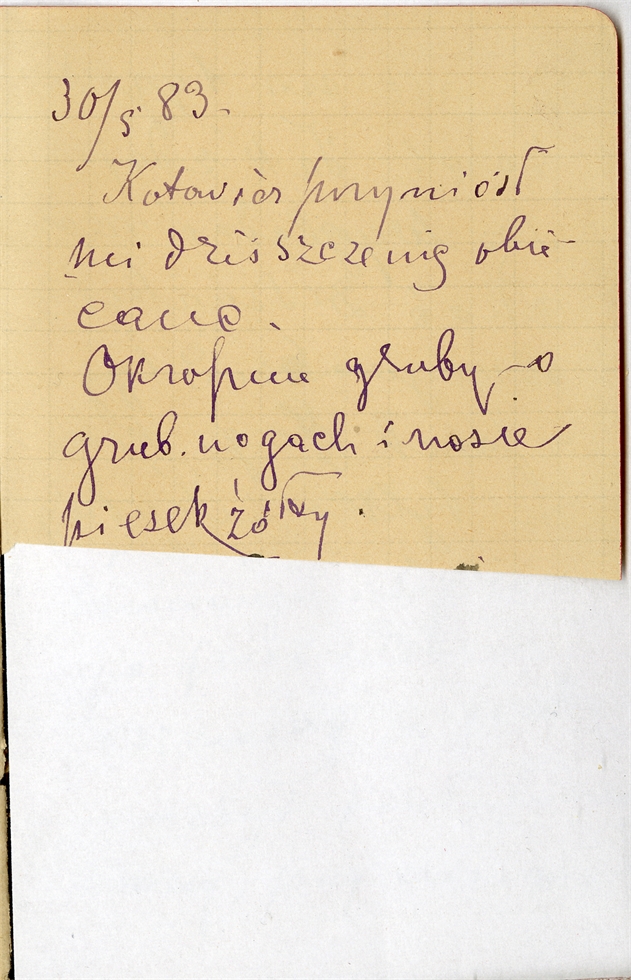 30/5 83.
Kotowicz przyniósł
mi dziś szczenię obie-
cane.
Okropnie gruby - o
grub. nogach i nosie
piesek żółty.